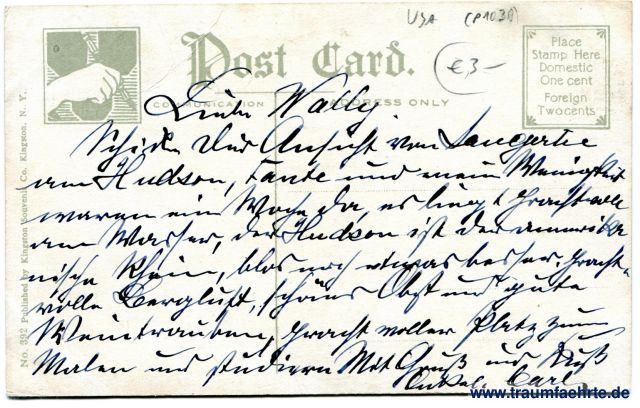 USA (P1030)
Post Card.
€3-
Place
Stamp Here
Domestic
One cent
Foreign
Two cents
COMMUNICATION
ADDRESS ONLY
No. 392 Published by Kingston Souvenir Co. Kingston, N. Y.
Liebe Wally
Schicke Dir Ansicht von Saugertie
am Hudson, Tante und mein Wenigkeit
waren ein Woche da, es liegt prachtvoll
am Wasser, der Hudson ist der amerika
nische Rhein, blos noch etwas besser, pracht-
volle Bergluft, schöns Obst und gute
Weintrauben, pracht voller Platz zum
Malen und studiern Mit Gruß und Kuß
Onkel Carl
www.traumfaehrte.de